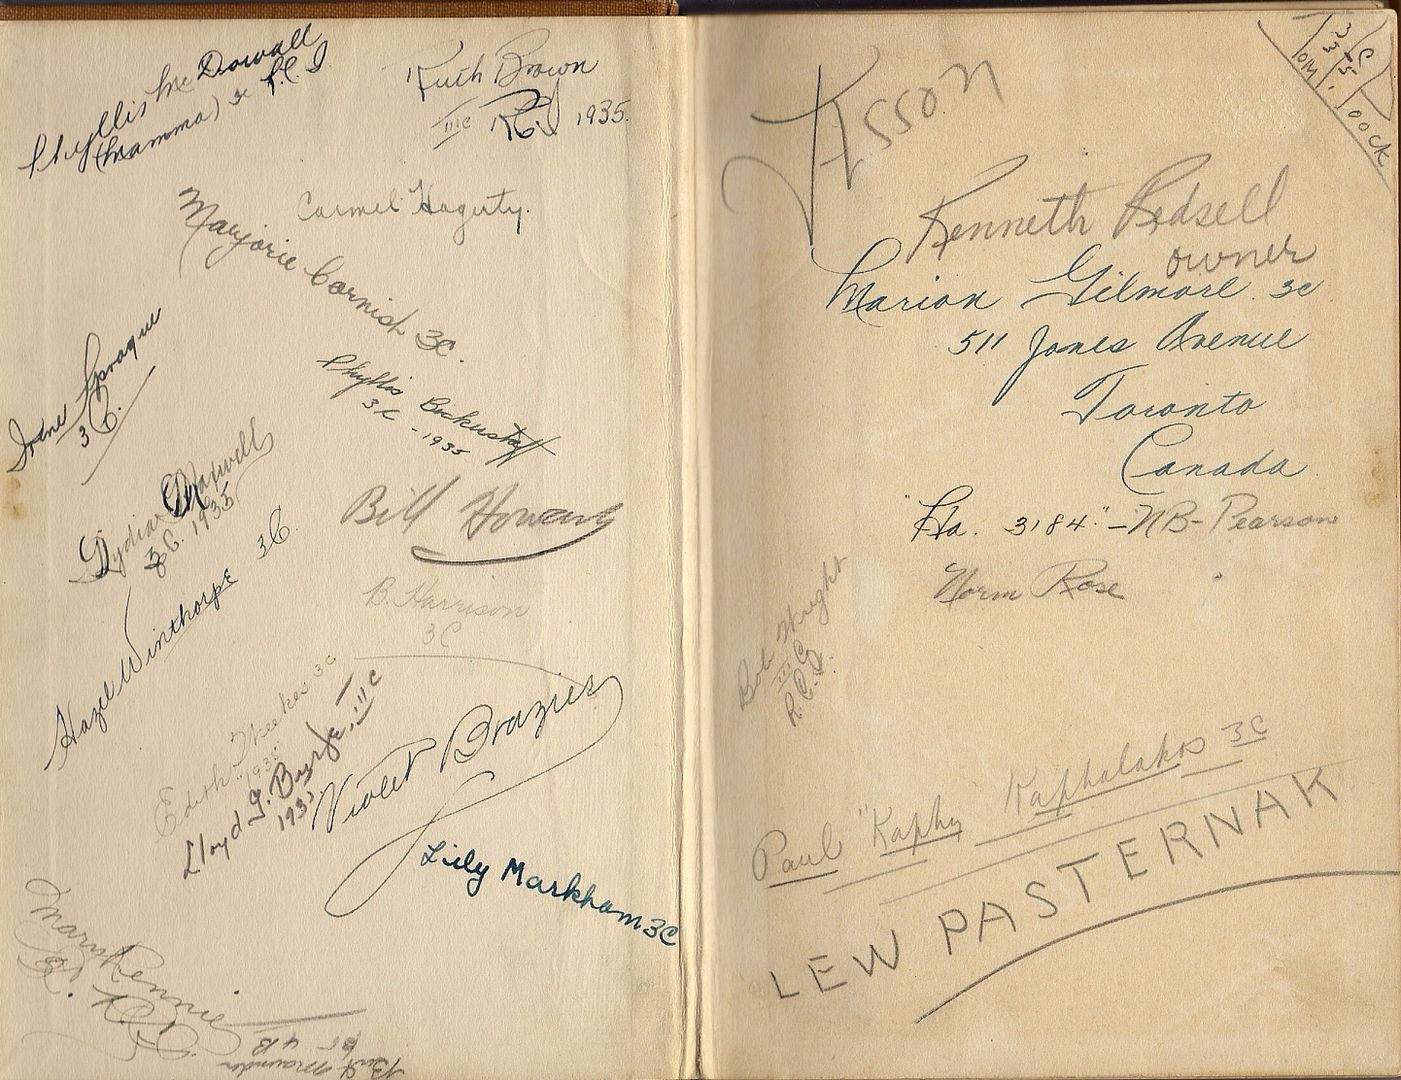 Phyllis McDowall
(Mamma) 3c R.C.I
Ruth Brown
IIIC 1935.
Carmel Hagerty.
Marjorie Cornish 3C.
Irene Sprague
3C.
Phyllis Bickerstaff
3C - 1935
Lydia Maxwell
3C. 1935
Bill
Hazel Winthorpe 3C.
B. Harrison
3C
Edith Weekes 3C
"1935"
Lloyd G. Byrfe IIIC
193
Violet Brazier
Lily Markham 3C
Mary Rennie
3C.
4B
Kenneth Redsell
owner
Marion Gilmore 3C
511 Jones Avenue
Toronto
Canada
"Ha. 3184" - NB - Pearson
Norm Rose
Bob Wright
III C
R.C.I.
Paul "Kaphy" Kaphalakos 3C
LEW PASTERNAK